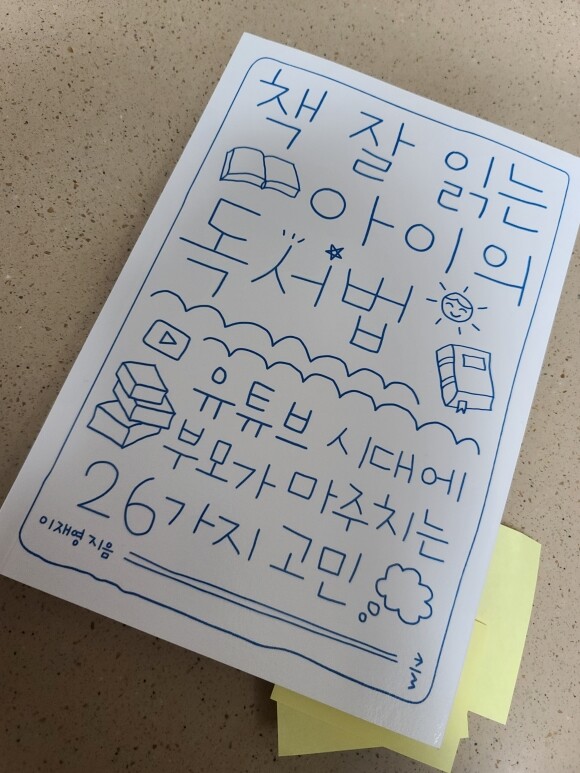 책 잘 읽는
아이의
독서법
유튜브 시대에
부모가 마주치는
26가지 고민
이재영 지음